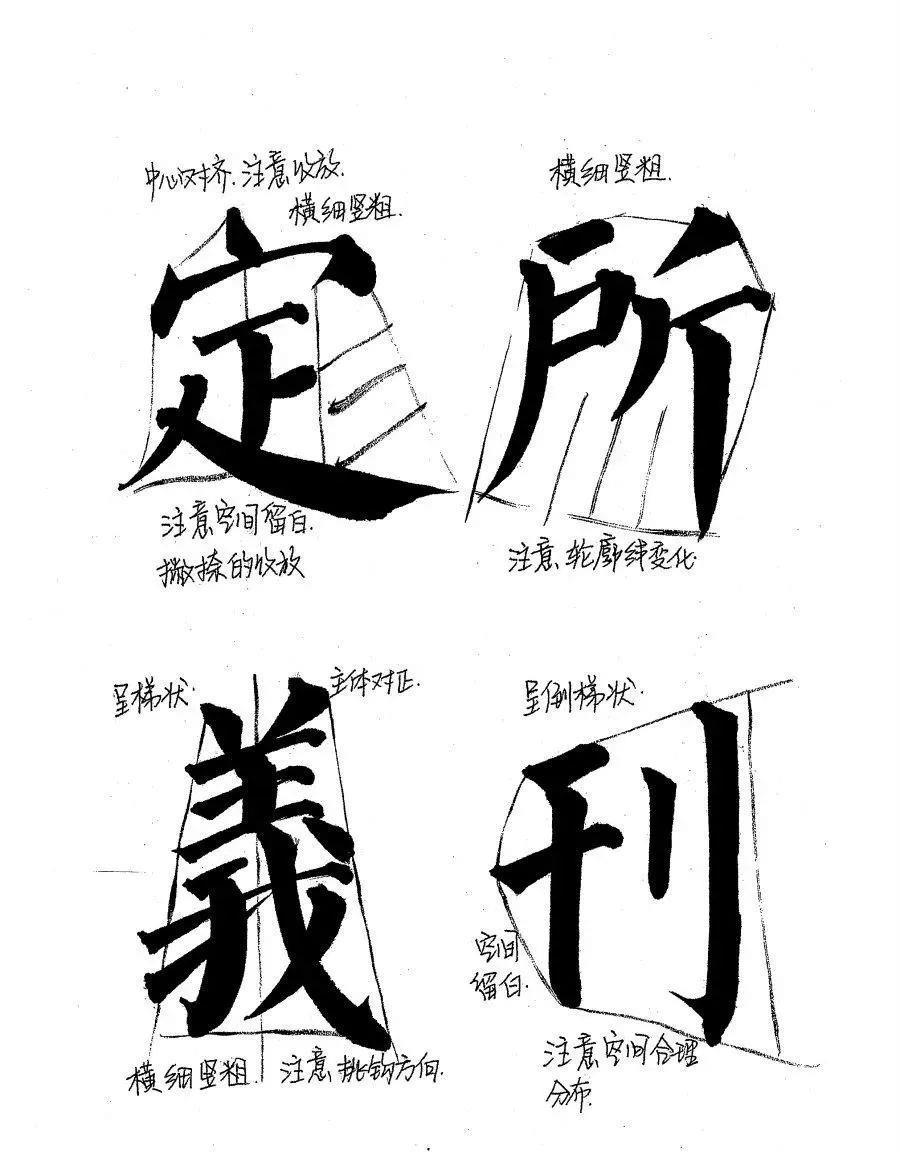 中心对齐.注意收放.
横细竖粗.
定
注意空间留白.
撇捺的收放
横细竖粗.
所
注意轮廓线变化.
呈梯状.
主体对正.
義
横细竖粗. 注意挑钩方向.
呈倒梯状.
刊
空间
留白.
注意空间合理
分布.